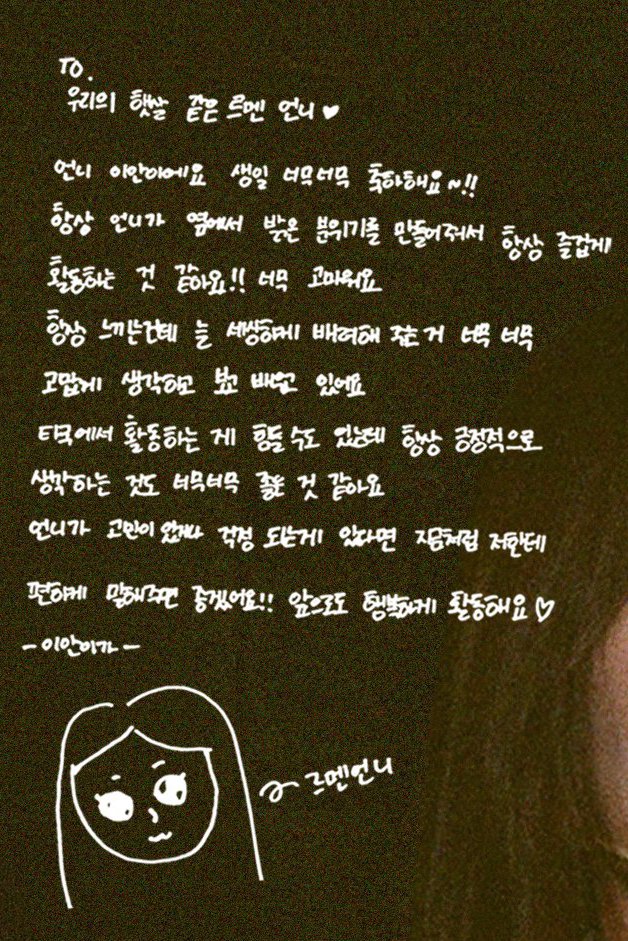 TO.
우리의 햇살 같은 르멘 언니♥
언니 이안이에요 생일 너무너무 축하해요~!!
항상 언니가 옆에서 밝은 분위기를 만들어줘서 항상 즐겁게
활동하는 것 같아요!! 너무 고마워요
항상 느끼는건데 늘 세심하게 배려해 주는 거 너무 너무
고맙게 생각하고 보고 배우고 있어요
타국에서 활동하는 게 힘들 수도 있는데 항상 긍정적으로
생각하는 것도 너무너무 좋은 것 같아요
언니가 고민이 있거나 걱정 되는게 있다면 지금처럼 저한테
편하게 말해주면 좋겠어요!! 앞으로도 행복하게 활동해요♡
-이안이가-
르멘언니